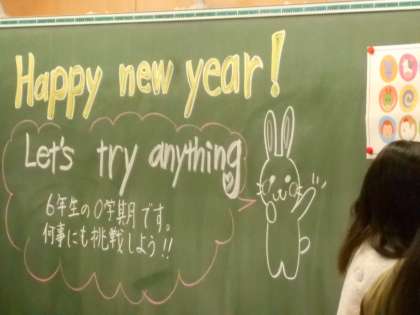 Happy new year!
Let's try anything
6年生の0学期月です。
何事にも挑戦しよう!!